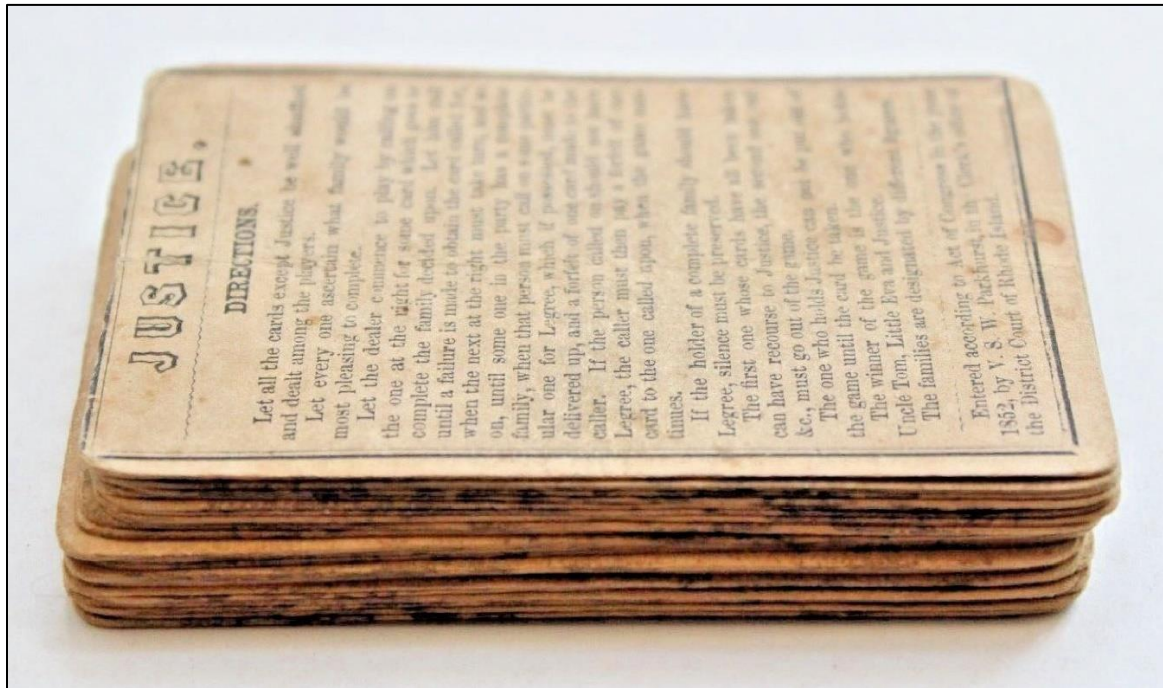 JUSTICE.
DIRECTIONS.
Let all the cards except Justice be well shuffled
and dealt among the players.
Let every one ascertain what family would be
most pleasing to complete.
Let the dealer commence to play by calling on
the one at the right for some card which goes to
complete the family decided upon. Let him call
until a failure is made to obtain the card called for,
when the next at the right must take turn, and so
on, until some one in the party has a complete
family, when that person must call on some particu-
ular one for Legree, which if possessed, must be
delivered up, and a forfeit of one card made to the
caller. If the person called on should not have
Legree, the caller must then pay a forfeit of one
card to the one called upon, when the game con-
tinues.
If the holder of a complete family should have
Legree, silence must be preserved.
The first one whose cards have all been taken
can have recourse to Justice, the second one out
&c., must go out of the game.
The one who holds Justice can not be put out of
the game until the card be taken.
The winner of the game is the one who holds
Uncle Tom, Little Eva and Justice.
The families are designated by different figures.
Entered according to Act of Congress in the year
1852, by V. S. W. Parkhurst, in the Clerk's office of
the District Court of Rhode Island.